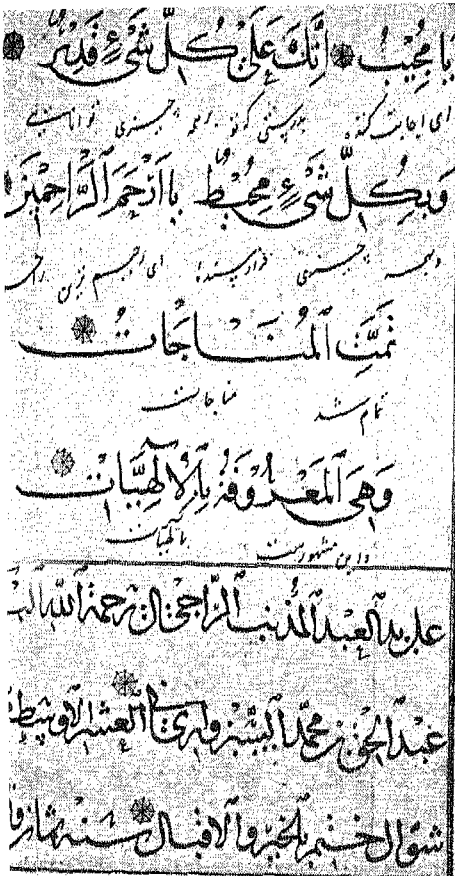 يا مُجِيبُ اِنَّكَ عَلٰى كُلِّ شَىْءٍ قَدِيْرٌ
ای اجابت کننده بدرستی که تو بر همه چیزی توانایی
وَبِكُلِّ شَىْءٍ مُحِيطٌ يا اَرْحَمَ الرَّاحِمِيْنَ
و بهمه چیزی ای رحیم ترین
تَمَّتِ الْمُنَاجَاتُ
تمام شد مناجات
وَهِىَ الْمَعْرُوفَةُ بِالْاِلٰهِيَّات
و این مشهورست بالهیات
على يد العبد المذنب الراجى الى رحمة الله
عبد الحق بن محمد السبزوارى فى العشر الاوسط
شوال ختم بالخير والاقبال سنه ثمان